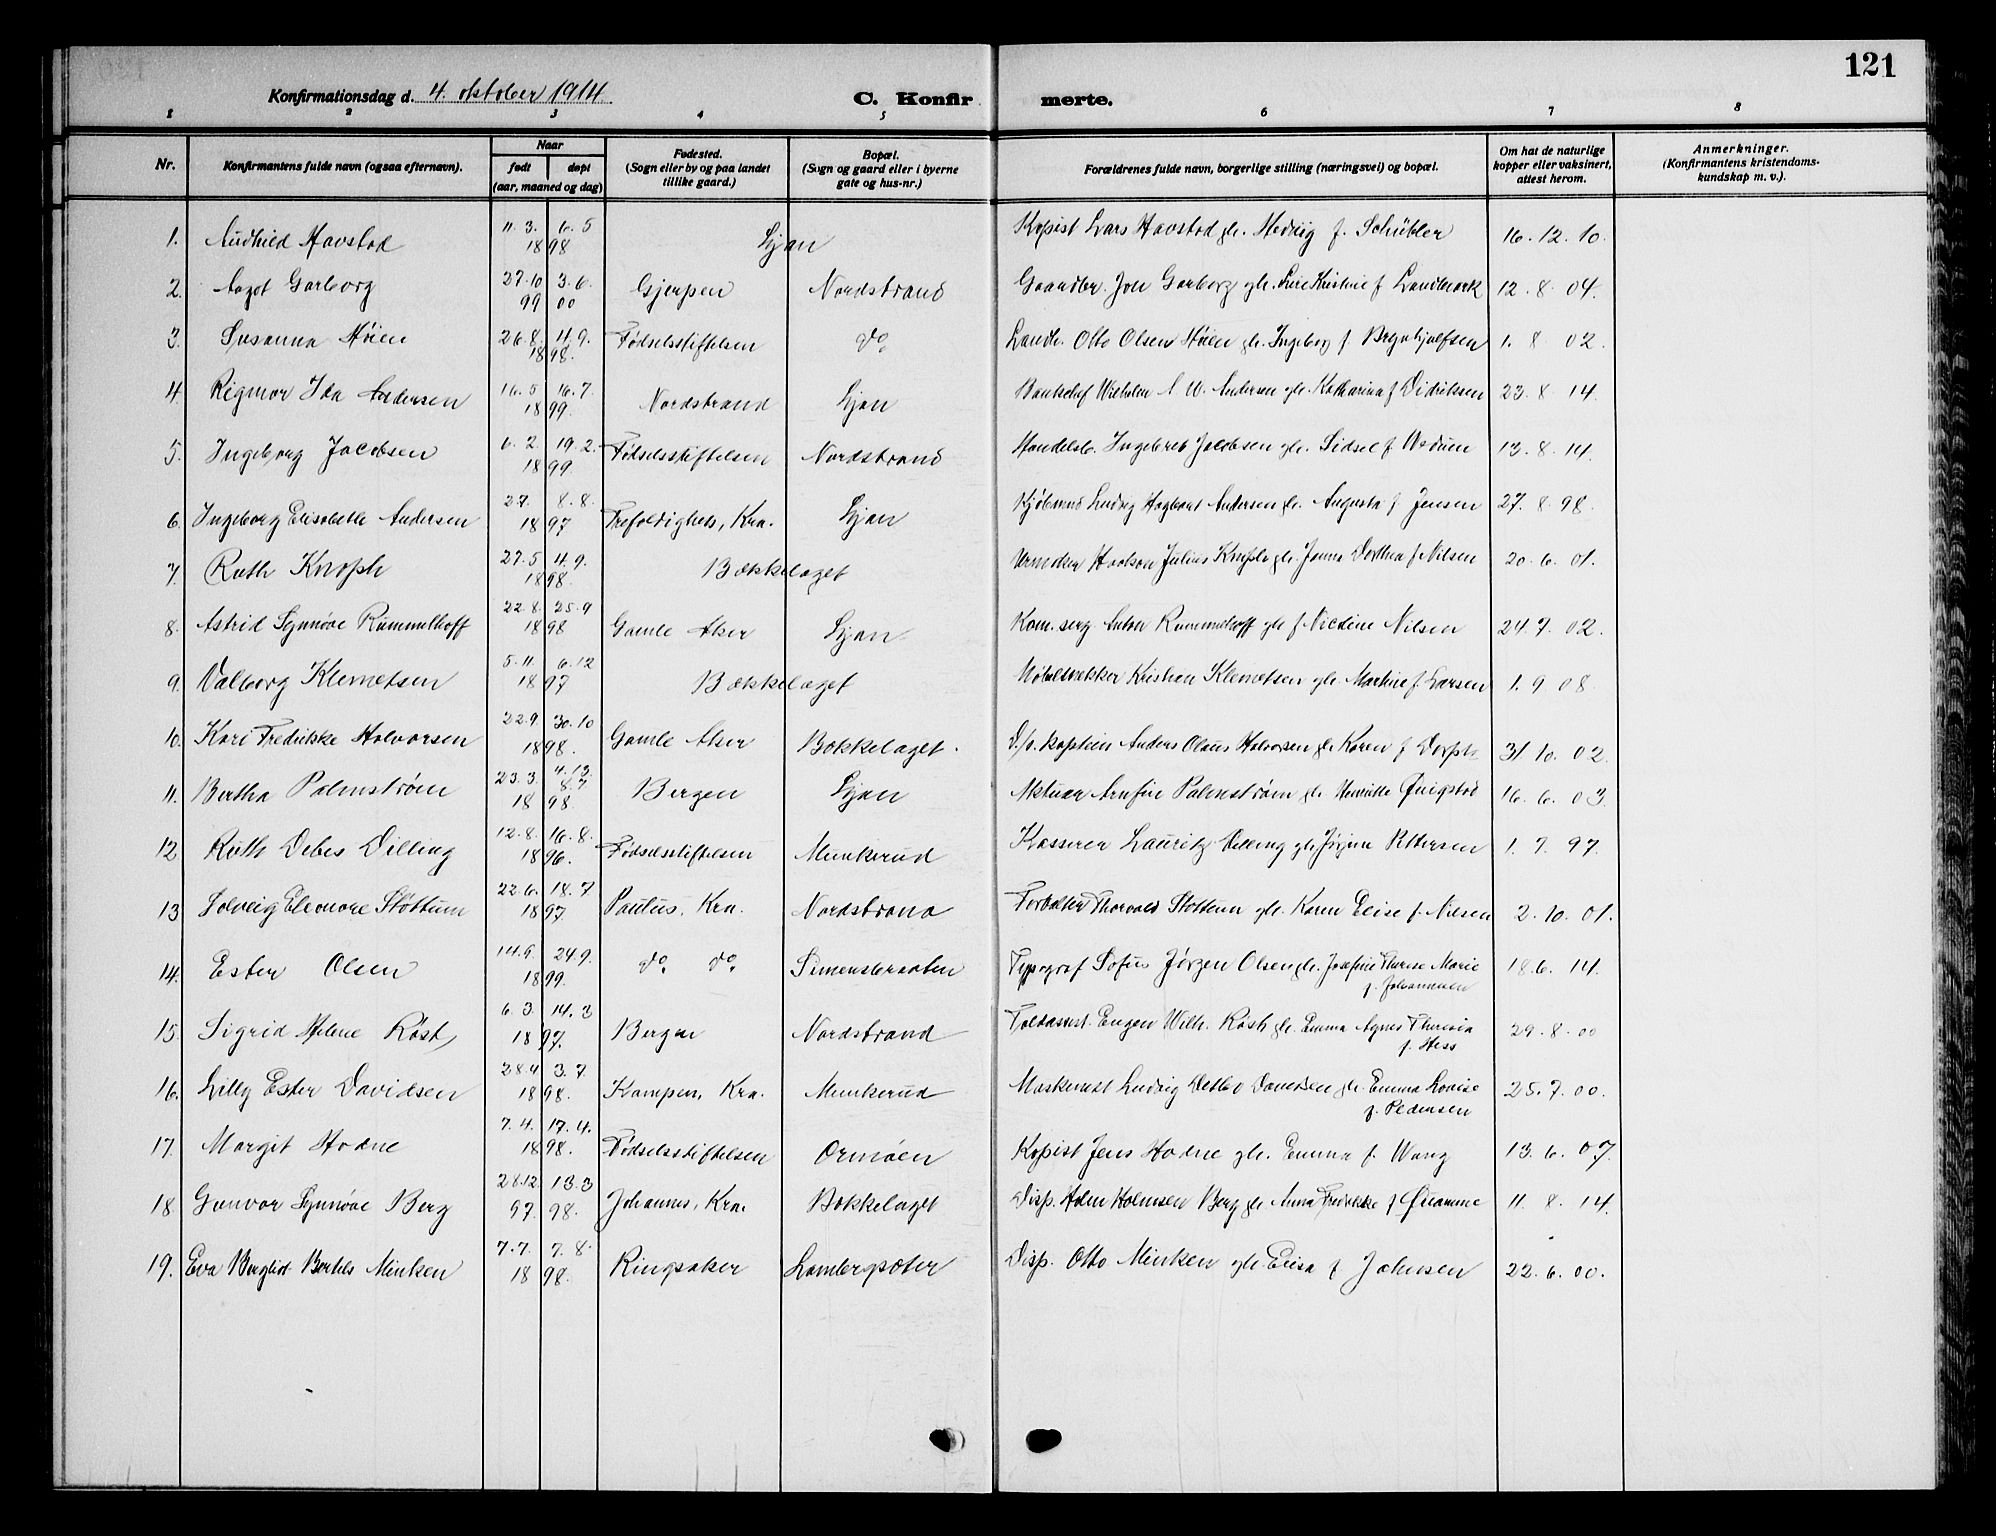 121
Konfirmationsdag d. 4. oktober 1914
C. Konfirmerte.
1 2 3 4 5 6 7 8
Nr.
Konfirmantens fulde navn (ogsaa efternavn).
Naar
født døpt
(aar, maaned og dag)
Fødested.
(Sogn eller by og paa landet
tillike gaard.)
Bopæl.
(Sogn og gaard eller i byerne
gate og hus-nr.)
Forældrenes fulde navn, borgerlige stilling (næringsvei) og bopæl.
Om hat de naturlige
kopper eller vaksinert,
attest herom.
Anmerkninger.
(Konfirmantens kristendoms-
kundskap m. v.).
1. Audhild Havstad 11. 3. 6. 5 1898 Ljan Kopist Lars Havstad gh. Hedvig f. Schübler 16. 12. 10.
2. Aagot Garborg 27. 10 99 3. 6. 00 Gjerpen Nordstrand Gaardbr. Jon Garborg gh. Kristine f Landmark 12. 8. 04.
3. Susanna Høien 26. 8. 11. 9. 1898. Fødselsstiftelsen do Landh. Otto Olsen Høien gh. Ingeborg f. Brynhjolfsen 1. 8 02.
4. Rigmor Ida Andersen 16. 5 16. 7. 1899. Nordstrand Ljan Bankchef Wilhelm A. W. Andersen gh. Katharina f Didriksen 23. 8 14.
5. Ingeborg Jacobsen 6. 2. 19. 2. 1899 Fødselsstiftelsen Nordstrand Handelsb. Ingebret Jacobsen gh. Sidsel f. 13. 8. 14.
6. Ingeborg Elisabeth Andersen 27. 8. 8. 1897 Trefoldighets, Kra. Ljan Kjøbmand Ludvig Hagbart Andersen gh. Augusta f Jensen 27. 8. 98.
7. Ruth Knoph 27. 5 11. 9. 1898. Bækkelaget Urmaker Haakon Julius Knoph gh. Janna Dorthea f Nilsen 20. 6. 01.
8. Astrid Synnøve Rummelhoff 22. 8. 25. 9 1898 Gamle Aker Ljan Kom. serg. Anton Rummelhoff gh f Nicoline Nilsen 24. 7. 02.
9. Valborg Klemetsen 5. 11. 6. 12 1897 Bækkelaget Kristian Klemetsen gh. Martine f. Larsen 1. 9 08.
10. Kari Fredrikke Halvorsen 22. 9. 30. 10 1898. Gamle Aker Bækkelaget. D/s. kaptein Anders Olaus Halvorsen gh. Karen f 31. 10. 02.
11. Bertha Palmstrøm 23. 3. 4. 13. 8. 7 1898. Bergen Ljan Aktuar Arnfin Palmstrøm gh. Henriette Quigstad 16. 6. 03.
12. Ruth Debes Dilling 12. 8. 16. 8. 1896. Fødselsstiftelsen Munkerud Kasserer Lauritz Dilling gh. Pettersen 1. 7. 97.
13. Solveig Eleonore Støttum 22. 6. 18. 7 1897. Paulus, Kra. Nordstrand Forvalter Thorvald Støttum gh. Karen Elise f. Nilsen 2. 10. 01.
14. Ester Olsen 14. 6. 24. 9. 1899. do do Simensbraaten Typograf Sofus Jørgen Olsen gh. Josefine Therese Marie
f. Johannesen 18. 6. 14.
15. Sigrid Helene Røst 6. 3. 14. 3 1897. Bergen Nordstrand Toldassist. Eugen Wilh. Røst gh. Emma Agnes Theresia
f. Hess 29. 8. 00
16. Lilly Ester Davidsen 28. 4 3. 7. 1898. Kampen, Kra. Munkerud Maskinist Ludvig Detlev Davidsen gh. Emma Lovise
f. Pedersen 25. 7. 00.
17. Margit Hodne 7. 4. 17. 4. 1898. Fødselsstiftelsen Ormøen Kopist Jens Hodne gh. Emma f. Wang 13. 6. 07.
18 Gunvor Synnøve Berg 28. 12. 97. 13. 3 98. Johannes, Kra. Bækkelaget Disp. Holmsen Berg gh. Anna Fredrikke f Qvamme 11. 8. 14.
19. Eva Bergliot Bertels Minken 7. 7. 7. 8. 1898. Ringsaker Lambergsæter Disp. Otto Minken gh. Elisa f Johnsen 22. 6. 00.